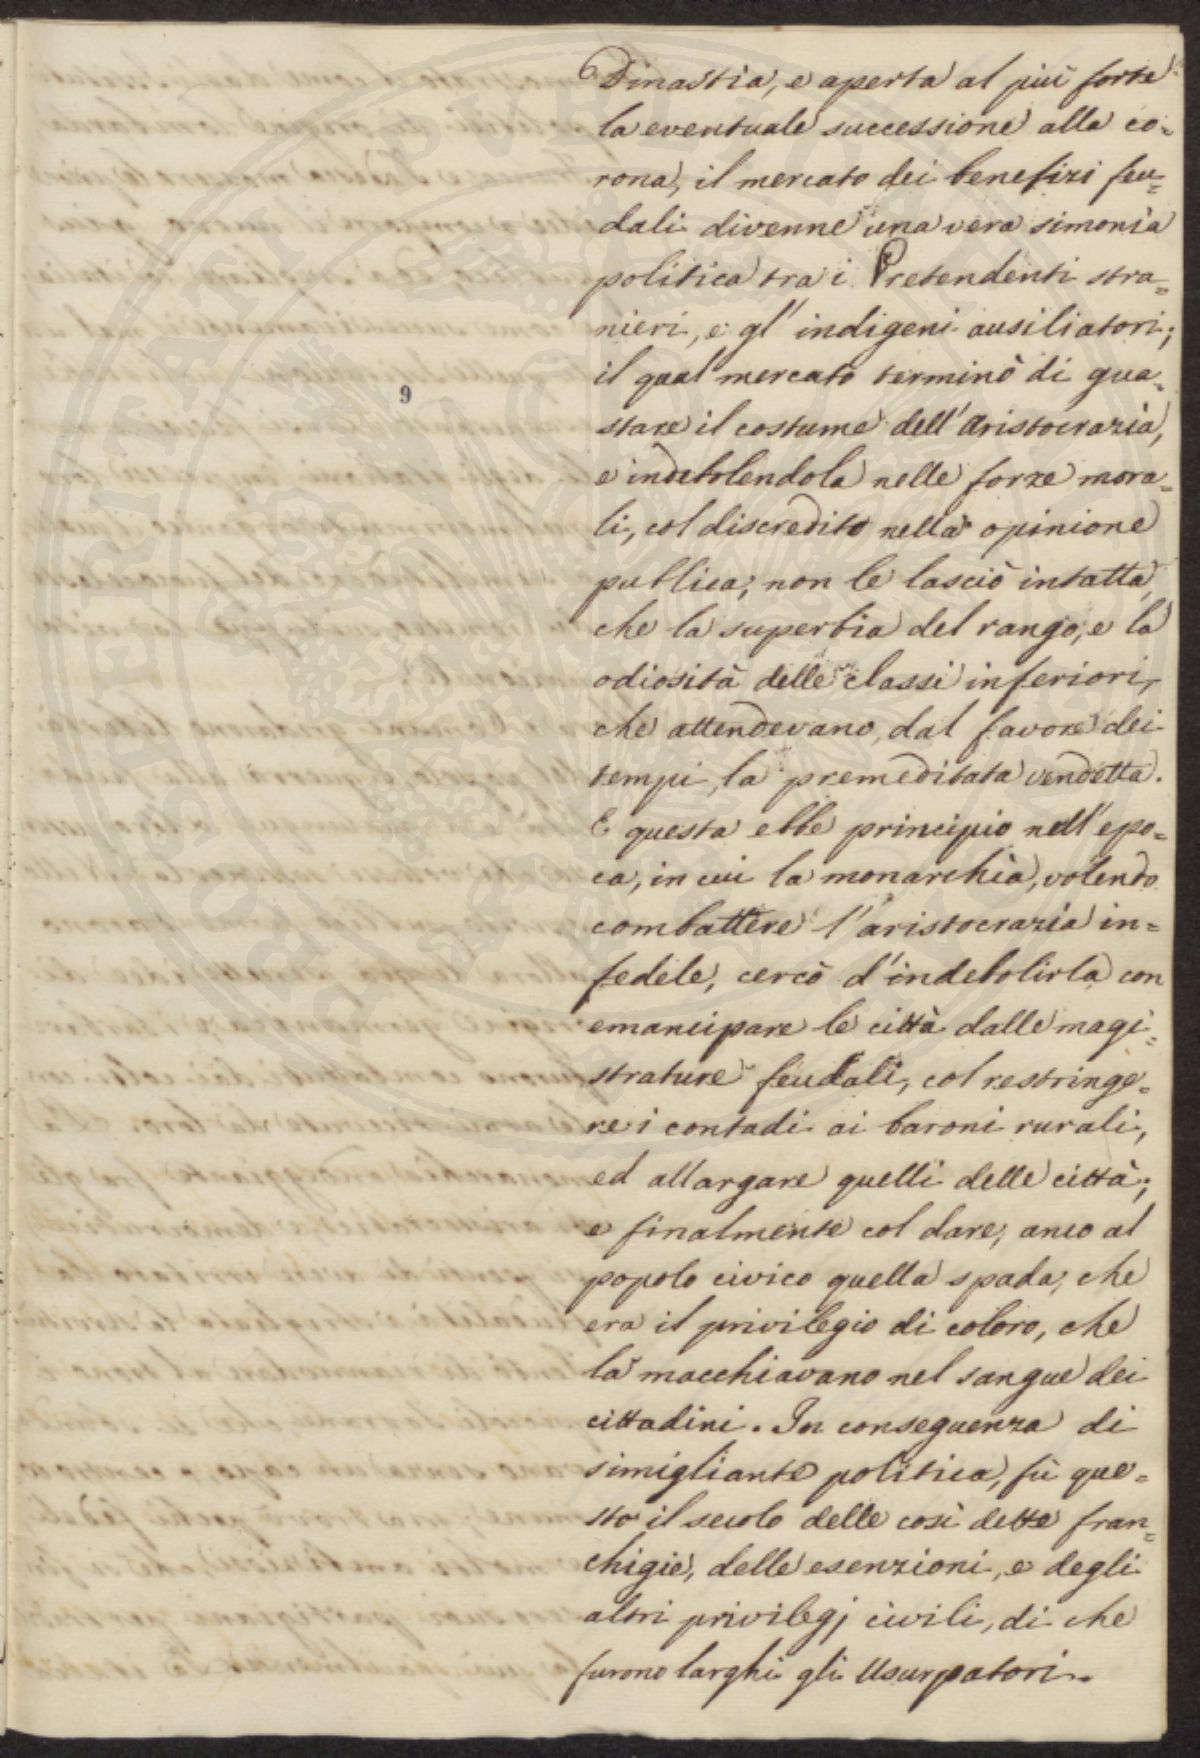 Dinastia, e aperta al più forte
la eventuale successione alla co=
rona, il mercato dei benefizi feu=
dali divenne una vera simonia
politica tra i Pretendenti stra=
nieri, e gl' indigeni ausiliatori;
il qual mercato terminò di gua=
9
stare il costume dell'Aristocrazia,
e indebolendola nelle forze mora=
li, col discredito nella opinione
publica, non le lasciò intatta,
che la superbia del rango, e la
odiosità delle classi inferiori,
che attendevano, dal favore dei
tempi, la premeditata vendetta.
E questa ebbe principio nell'epo=
ca, in cui la monarchia, volendo
combattere l'aristocrazia in=
fedele, cercò d'indebolirla con
emancipare le città dalle magi=
strature feudali, col restringe=
re i contadi ai baroni rurali,
ed allargare quelli delle città;
e finalmente col dare, anco al
popolo civico quella spada, che
era il privilegio di coloro, che
la macchiavano nel sangue dei
cittadini. In conseguenza di
simigliante politica, fù que=
sto il secolo delle così dette fran=
chigie, delle esenzioni, e degli
altri privilegj civili, di che
furono larghi gli Usurpatori.